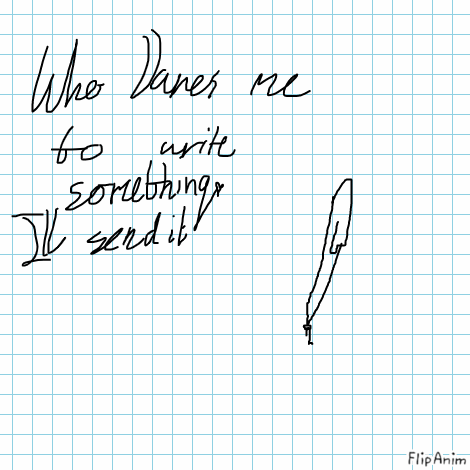 Who Dares me
to write
something,
Ill send it
FlipAnim